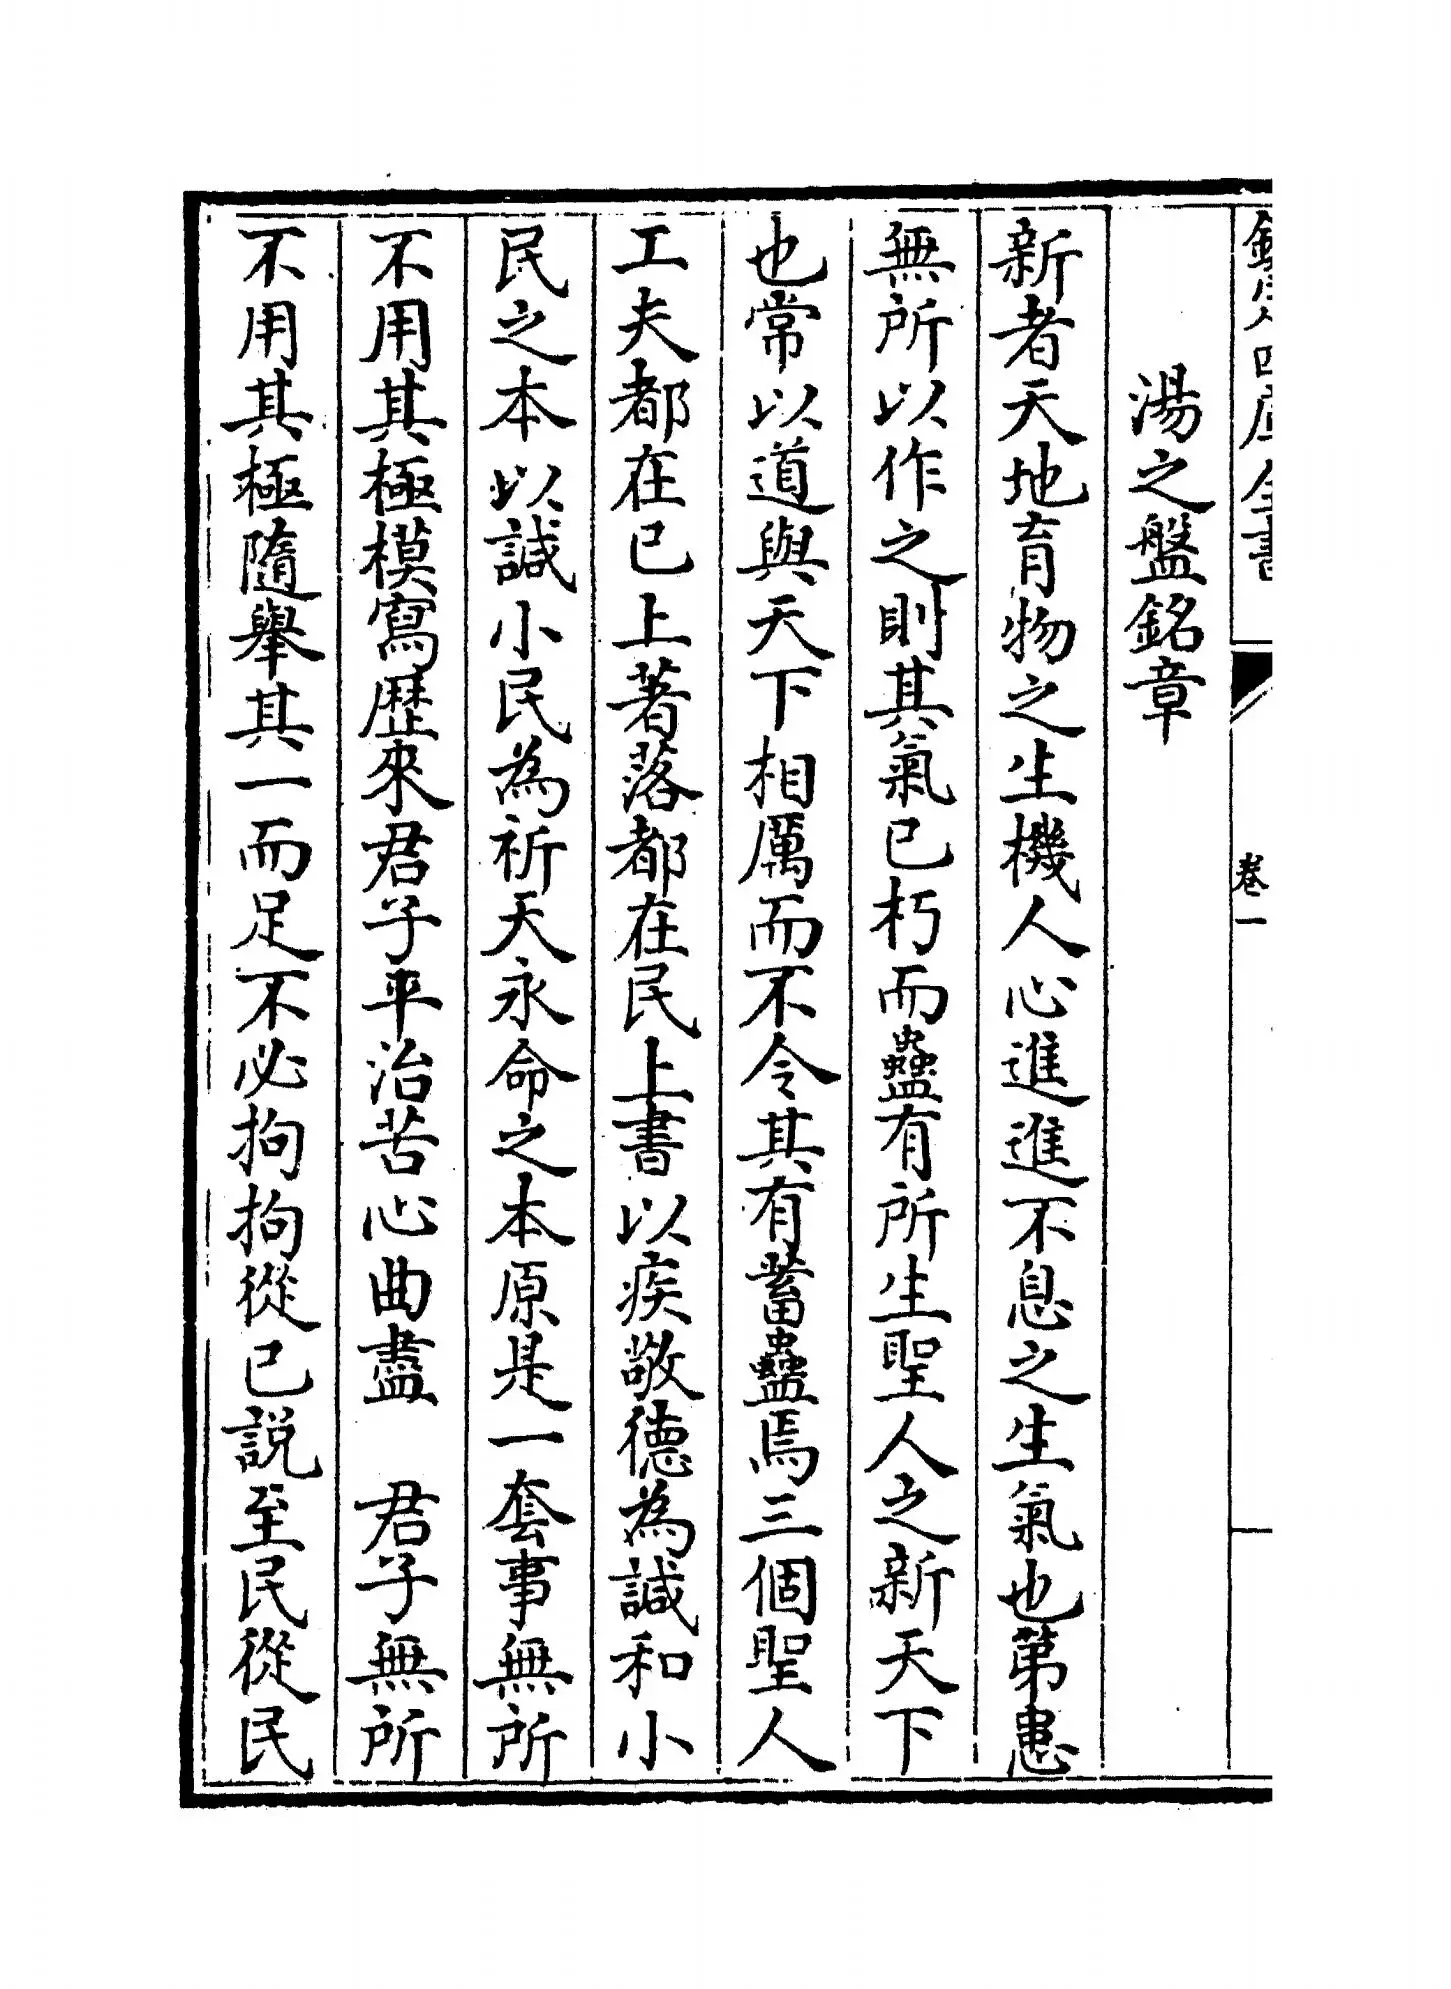 欽定四庫全書
卷一
湯之盤銘章
新者天地育物之生機人心進進不息之生氣也第患
無所以作之則其氣已朽而蠱有所生聖人之新天下
也常以道與天下相厲而不令其有蓄蠱焉三個聖人
工夫都在已上著落都在民上書以疾敬德為諴和小
民之本以諴小民為祈天永命之本原是一套事無所
不用其極模寫歷來君子平治苦心曲盡　君子無所
不用其極隨舉其一而足不必拘拘從已説至民從民